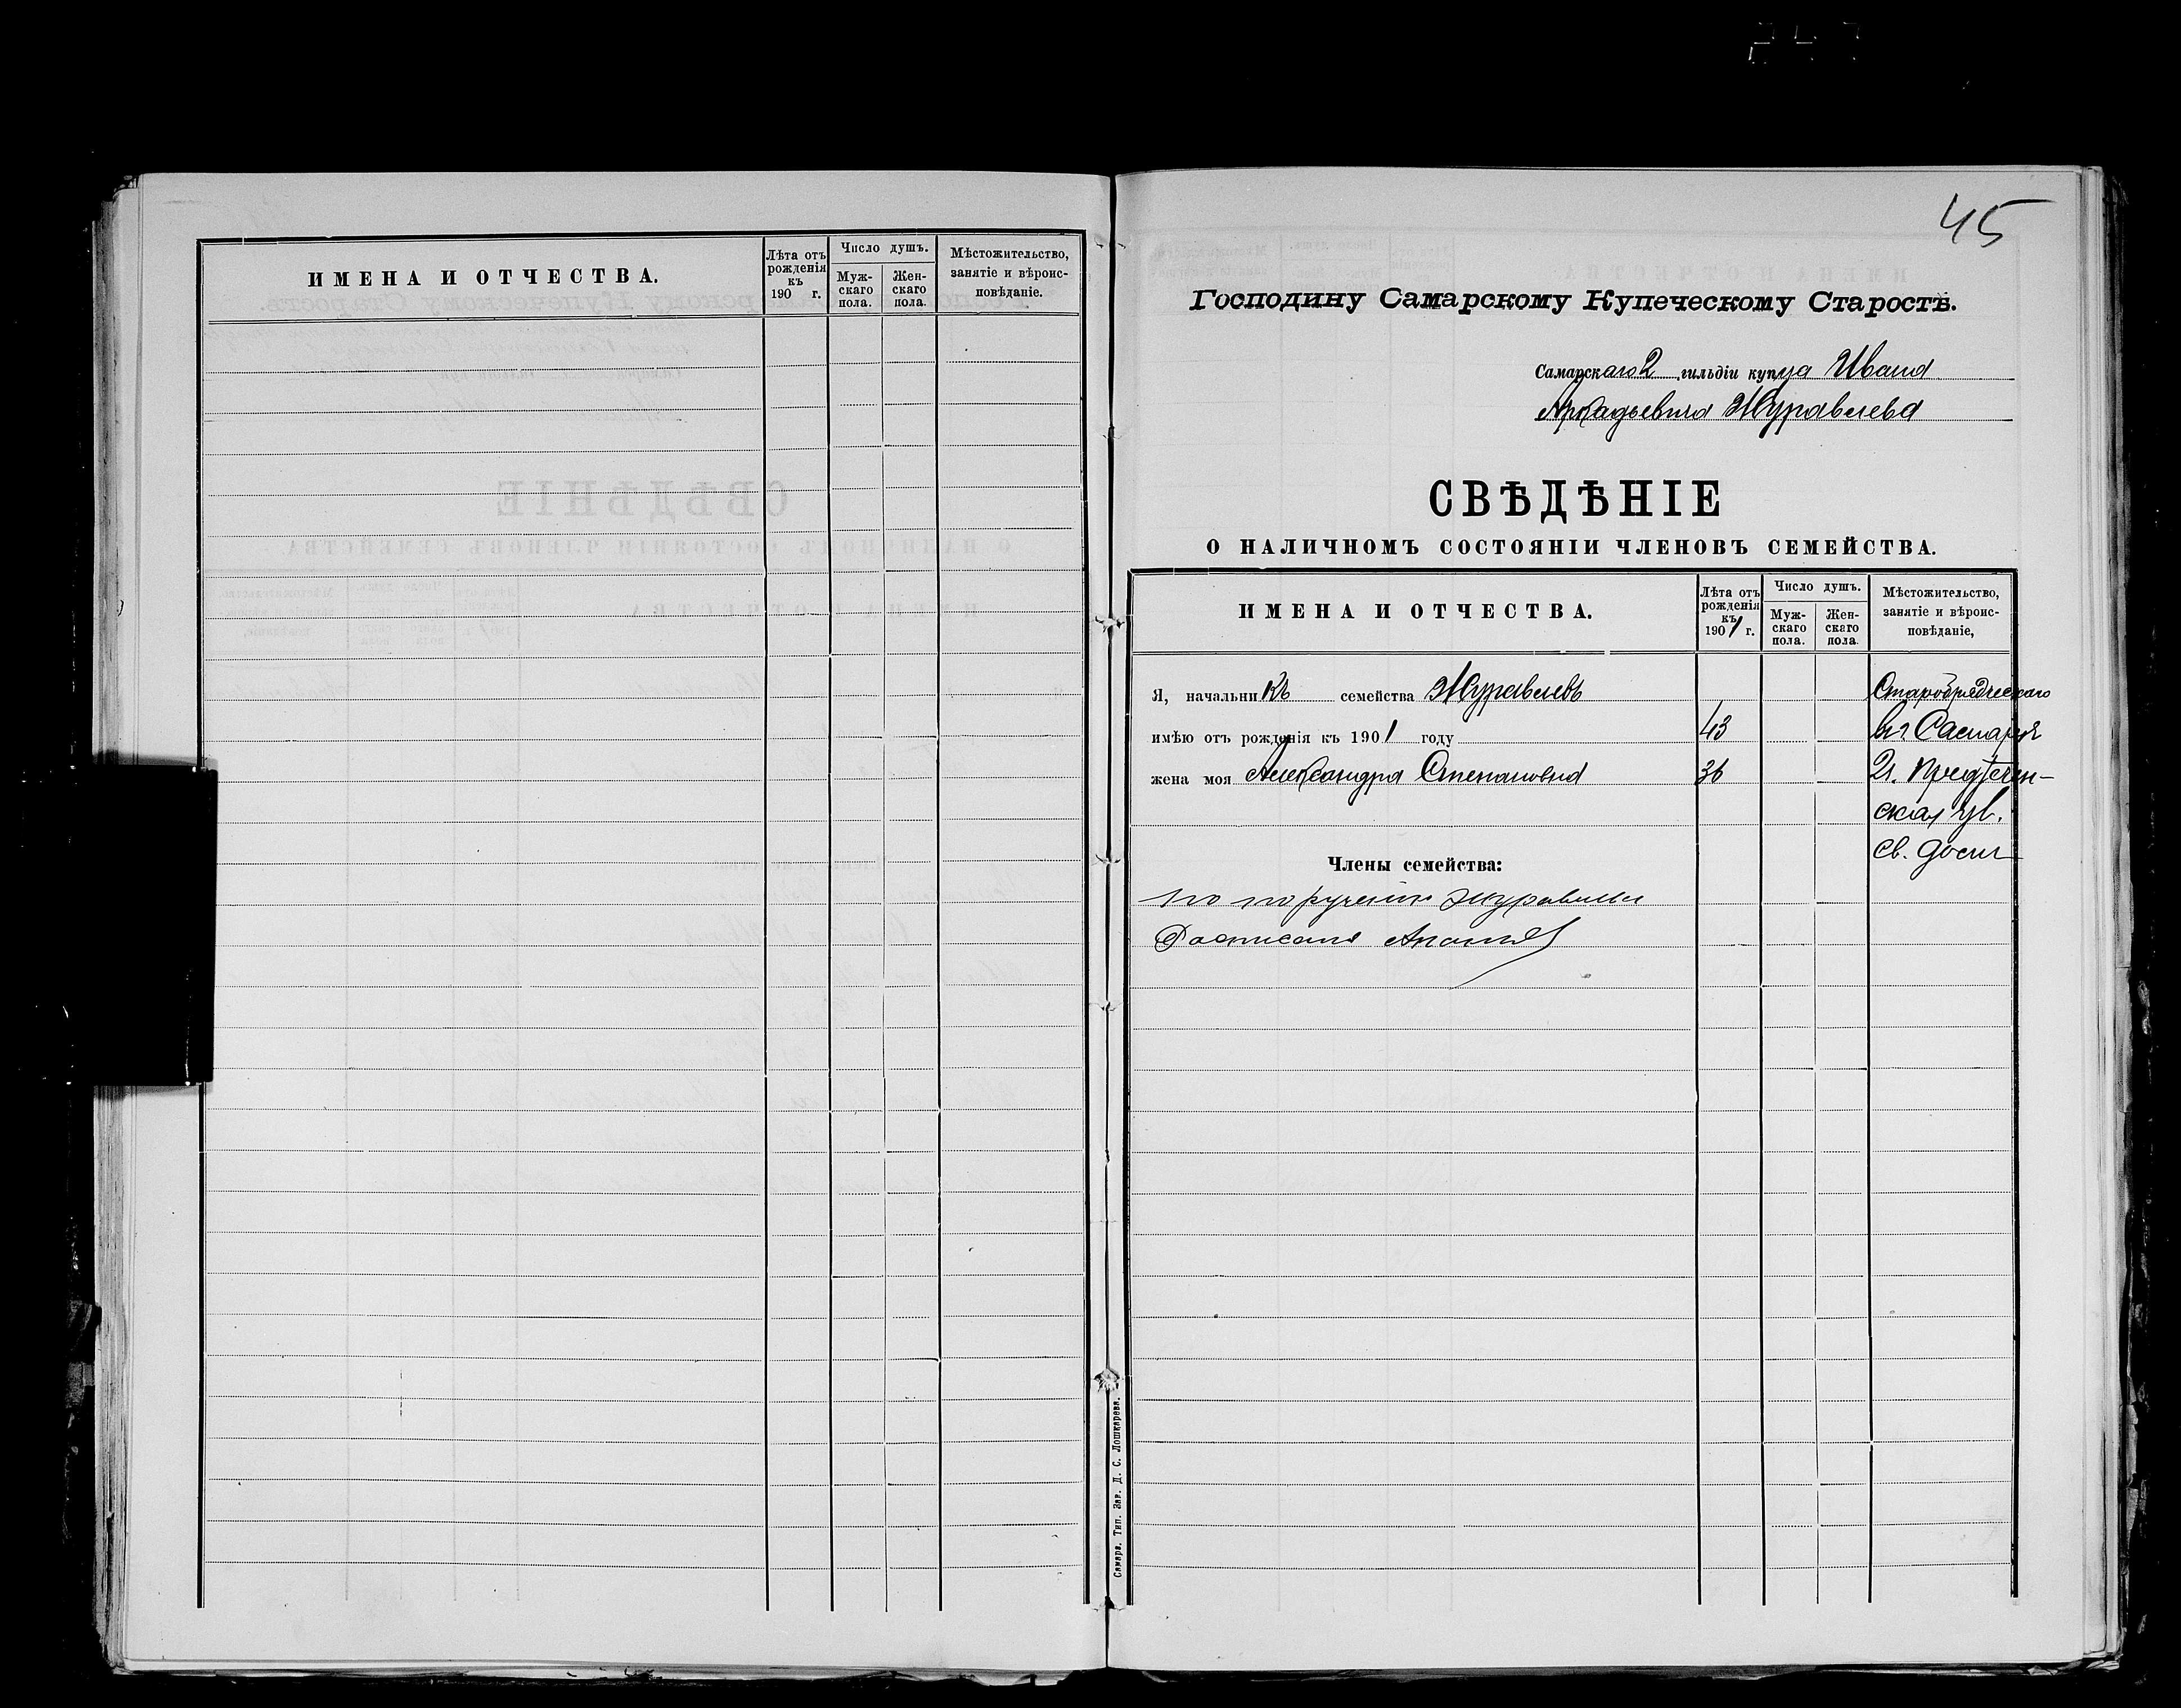 ИМЕНА И ОТЧЕСТВА.
Лѣта отъ рожденія къ 190 г.
Число душъ.
Муж-скаго пола.
Жен-скаго пола.
Мѣстожительство, занятіе и вѣроис-повѣданіе.
45
Господину Самарскому Купеческому Старостѣ.
Самарскаго 2 гильдіи купца Ивана
Аркадьевича Журавлева
СВѢДѢНІЕ
О НАЛИЧНОМЪ СОСТОЯНІИ ЧЛЕНОВЪ СЕМЕЙСТВА.
ИМЕНА И ОТЧЕСТВА.
Лѣта отъ рожденія къ 1901 г.
Число душъ.
Муж-скаго пола.
Жен-скаго пола.
Мѣстожительство, занятіе и вѣроис-повѣданіе,
Я, начальникъ семейства Журавлевъ Старобрядческаго
имѣю отъ рожденія къ 1901 году 43 вг Самарѣ
жена моя Александра Степановна 36 Предтечен-
ская ул.
св. домъ
Члены семейства:
по порученію Журавлева
Самара. Тип. Зав. Д. С. Лошкарева.